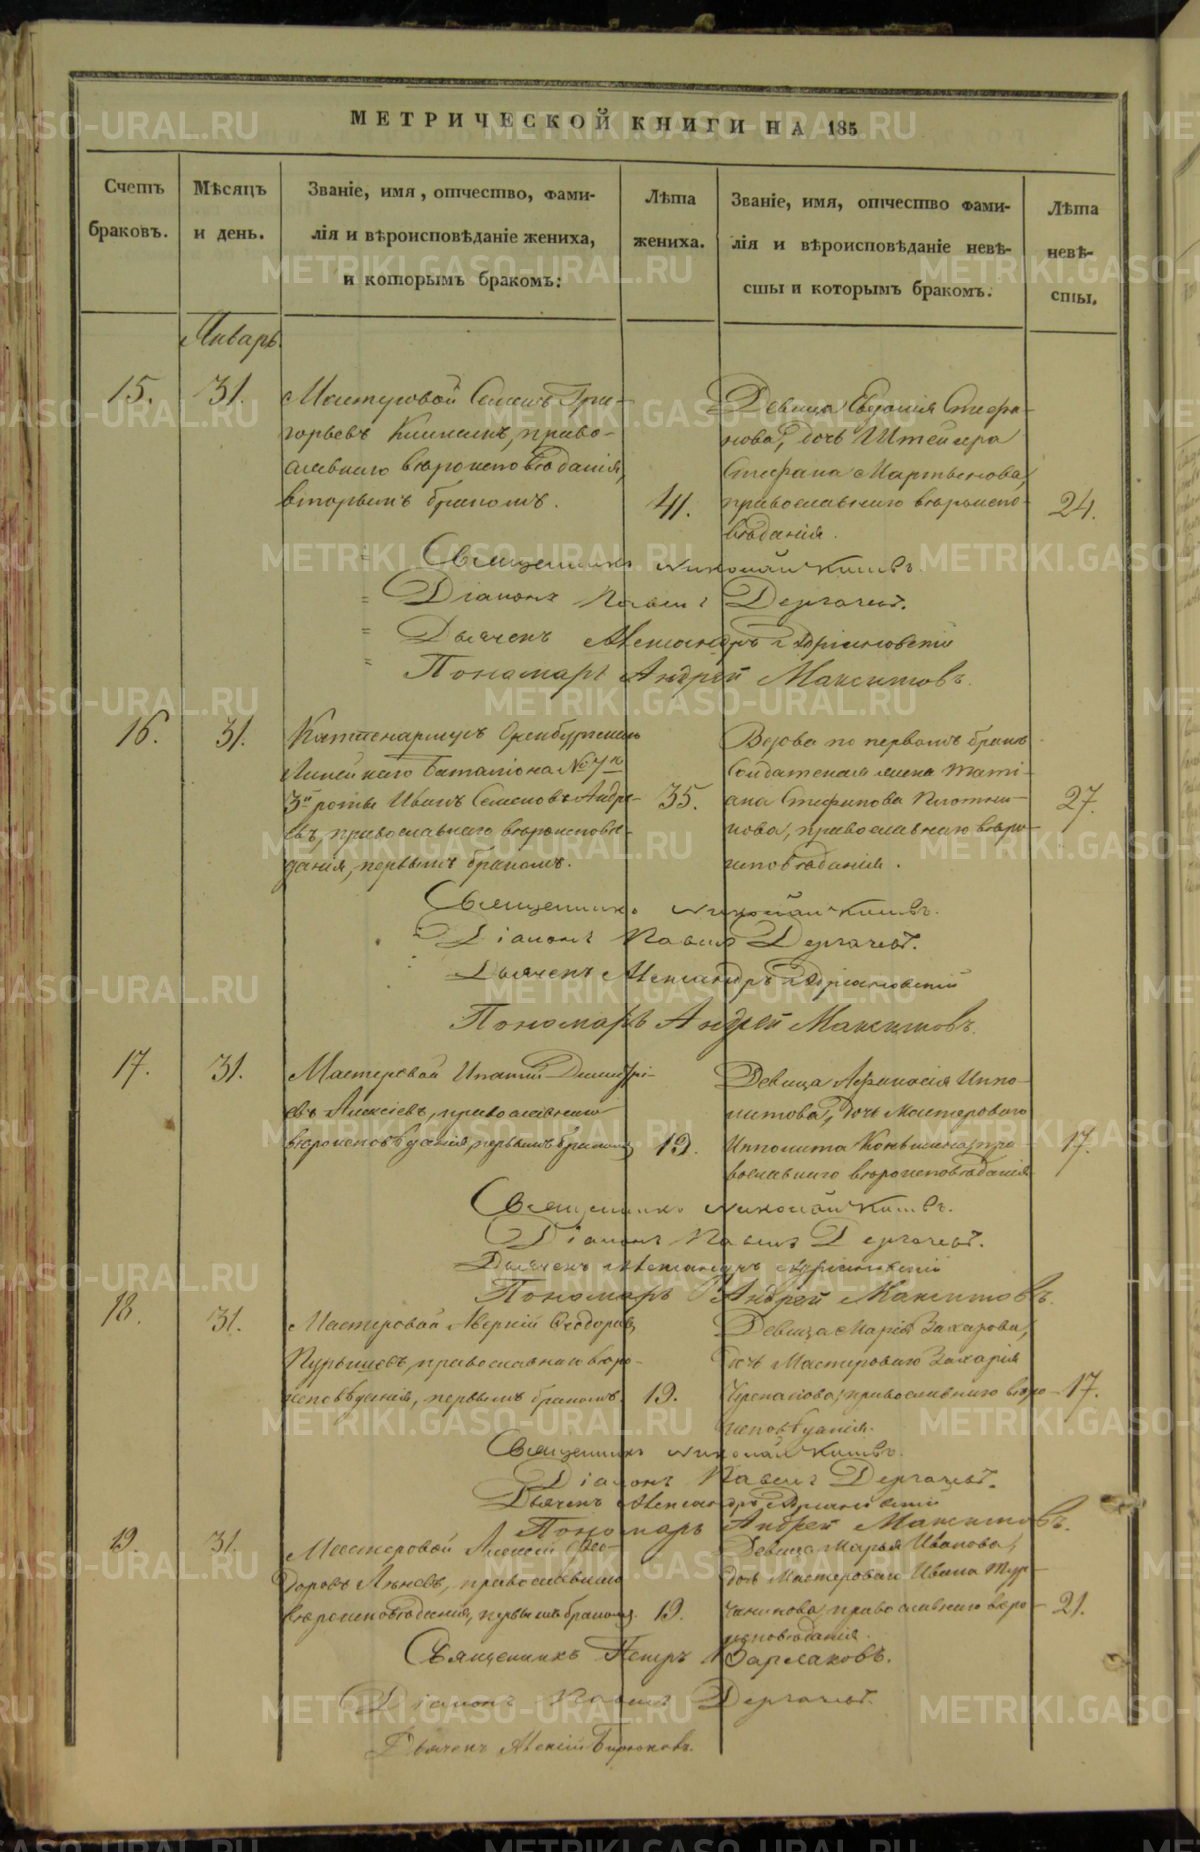 МЕТРИЧЕСКОЙ КНИГИ НА 185
Счетъ браковъ.
Мѣсяцъ и день.
Званіе, имя, отчество, фами-
лія и вѣроисповѣданіе жениха,
и которымъ бракомъ:
Лѣта жениха.
Званіе, имя, отчество фами-
лія и вѣроисповѣданіе невѣ-
сты и которымъ бракомъ.
Лѣта невѣ-
сты.
Январь.
15. 31.
Мастеровой Семенъ Гри-
горьевъ право-
славнаго вѣроисповѣданія,
вторымъ бракомъ.
41.
Девица Евдокія Стефа-
нова, дочь Штейгера
Стефана Мартьянова,
православнаго вѣроиспо-
вѣданія.
24.
Священникъ Николай
Діаконъ Павелъ Дергачевъ.
Дьячекъ Александръ Адріановскій
Пономарь Андрей Максимовъ.
16. 31.
Каптенармусъ Оренбургскаго
Линейнаго Баталіона №7го
3й роты Иванъ Семеновъ Андре-
евъ, православнаго вѣроисповѣ-
данія, первымъ бракомъ.
35.
Вдова по первомъ бракѣ
Солдатская жена Таті-
ана Стефанова Плотни-
кова, православнаго вѣро-
исповѣданія.
27.
Священникъ Николай
Діаконъ Павелъ Дергачевъ.
Дьячекъ Александръ Адріановскій
Пономарь Андрей Максимовъ.
17. 31.
Мастеровой Ипатій Димитрі-
евъ Алексіевъ, православнаго
вѣроисповѣданія, первымъ бракомъ,
19.
Девица Афанасія Иппо-
литова, дочь Мастероваго
Ипполита Коньшина, пра-
вославнаго вѣроисповѣданія
17.
Священникъ Николай
Діаконъ Павелъ Дергачевъ.
Дьячекъ Александръ Адріановскій
Пономарь Андрей Максимовъ.
18. 31.
Мастеровой Аверкій Ѳеодоровъ
православнаго вѣро-
исповѣданія, первымъ бракомъ.
19.
Девица Марія Захарова,
дочь Мастероваго Захарія
Черепанова, православнаго вѣро-
исповѣданія.
17.
Священникъ Николай
Діаконъ Павелъ Дергачевъ.
Дьячекъ Александръ Адріановскій
Пономарь Андрей Максимовъ.
19. 31.
Мастеровой Алексій Ѳео-
доровъ православнаго
вѣроисповѣданія, первымъ бракомъ.
19.
Девица Марья Иванова,
дочь Мастероваго Ивана Тур-
чанинова, православнаго вѣро-
исповѣданія.
21.
Священникъ Петръ Варлаковъ.
Діаконъ Павелъ Дергачевъ.
Дьячекъ Алексій Бирюковъ.
METRIKI.GASO-URAL.RU